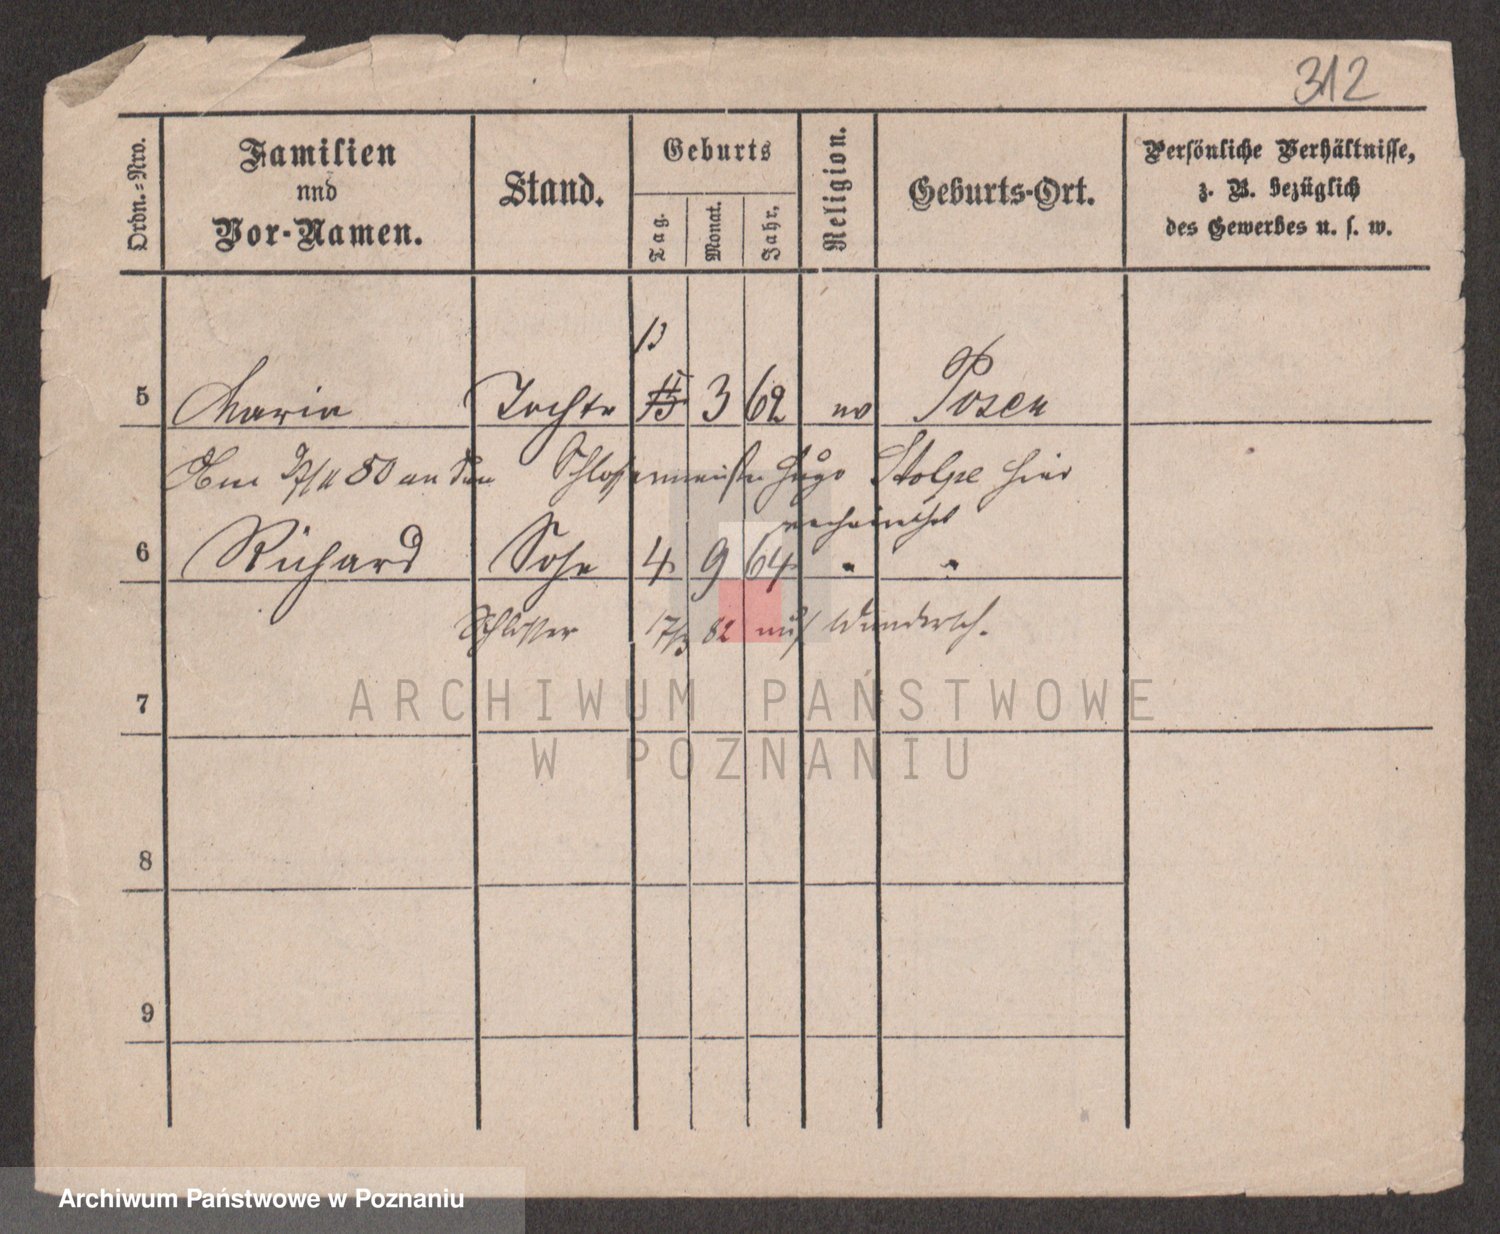 312
Ordn.=Nro.
Familien
nnd
Vor-Namen.
Stand.
Geburts
Tag.
Monat.
Jahr.
Religion.
Geburts-Ort.
Persönliche Verhältnisse,
z. B. bezüglich
des Gewerbes u. s. w.
13
5 Maria Tochter 15 3 62 ev Posen
Am 80 an den Schlossermeister Hugo Stolpe hier
verheirathet
6 Richard Sohn 4 9 64 " "
Schlosser 17/3 82 auf Wandersch.
7
8
9
ARCHIWUM PAŃSTWOWE
W POZNANIU
Archiwum Państwowe w Poznaniu